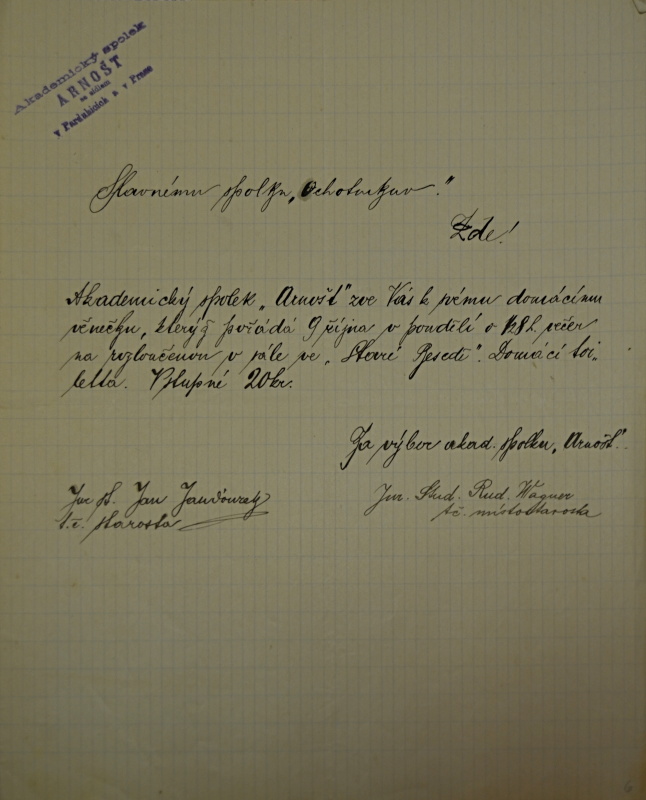 Akademický spolek
ARNOŠT
se sídlem
v Pardubicích a v Praze
Slavnému spolku „Ochotnikův."
Zde!
Akademický spolek „Arnošt" zve Vás k svému domácímu
věnečku, který pořádá 9 října v pondělí o ½8 h. večer
na rozloučenou v sále ve „Staré Besedě". Domácí toi„
letta. Vstupné 20 kr.
Za výbor akad. spolku „Arnošt".
Jur. Stud. Rud. Wagner
t.č. místostarosta
Jur. st. Jan
t.č. starosta
6